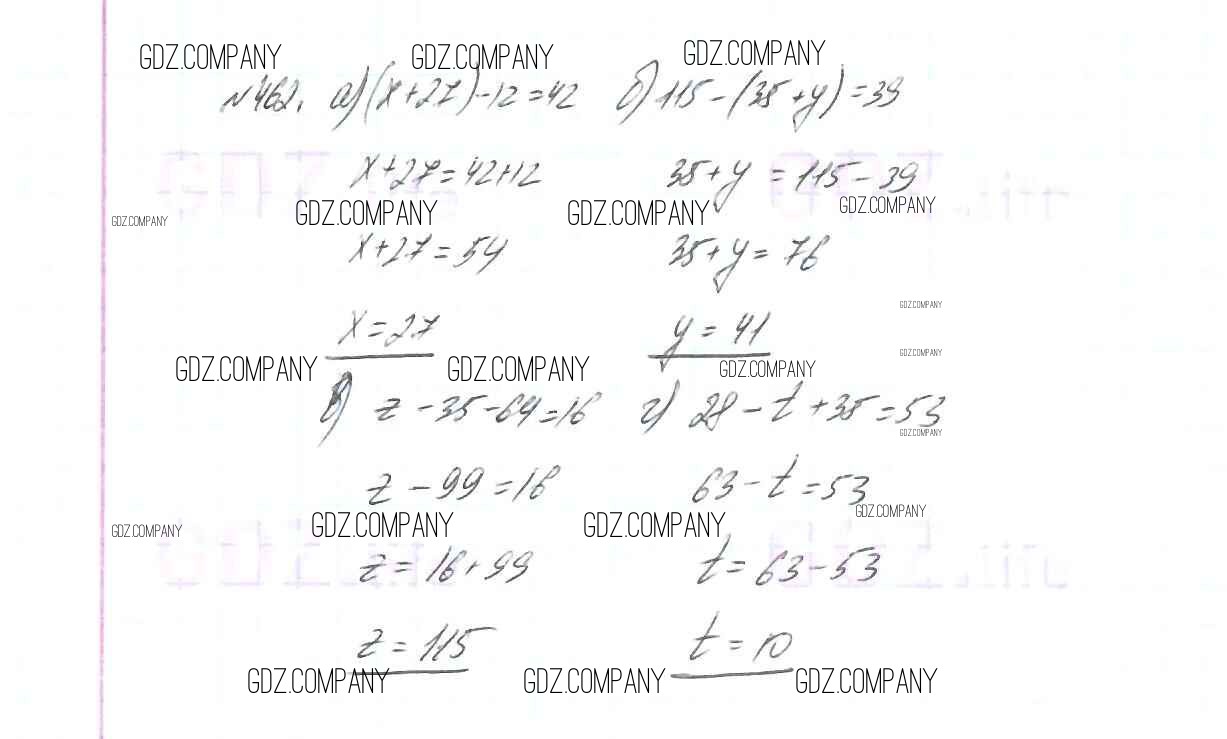 GDZ.COMPANY GDZ.COMPANY GDZ.COMPANY
№462. а) (x+27)-12=42 б) 115-(35+y)=39
x+27=42+12 35+y=115-39
GDZ.COMPANY GDZ.COMPANY GDZ.COMPANY GDZ.COMPANY
x+27=54 35+y=76
GDZ.COMPANY
x=27 y=41
GDZ.COMPANY
GDZ.COMPANY GDZ.COMPANY GDZ.COMPANY
в) z-35-64=16 г) 28-t+35=53
GDZ.COMPANY
z-99=16 63-t=53
GDZ.COMPANY GDZ.COMPANY GDZ.COMPANY GDZ.COMPANY
z=16+99 t=63-53
z=115 t=10
GDZ.COMPANY GDZ.COMPANY GDZ.COMPANY